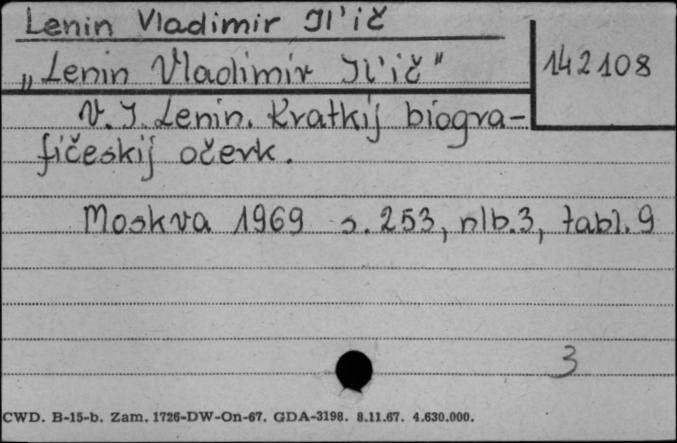 Lenin Vladimir Il'ič
„Lenin Vladimir Il'ič"
142108
V. I. Lenin. Kratkij biogra-
fičeskij očerk.
Moskva 1969 s. 253, nlb. 3, tabl. 9
3
CWD. B-15-b. Zam. 1726-DW-On-67. GDA-3198. 8.11.67. 4.630.000.